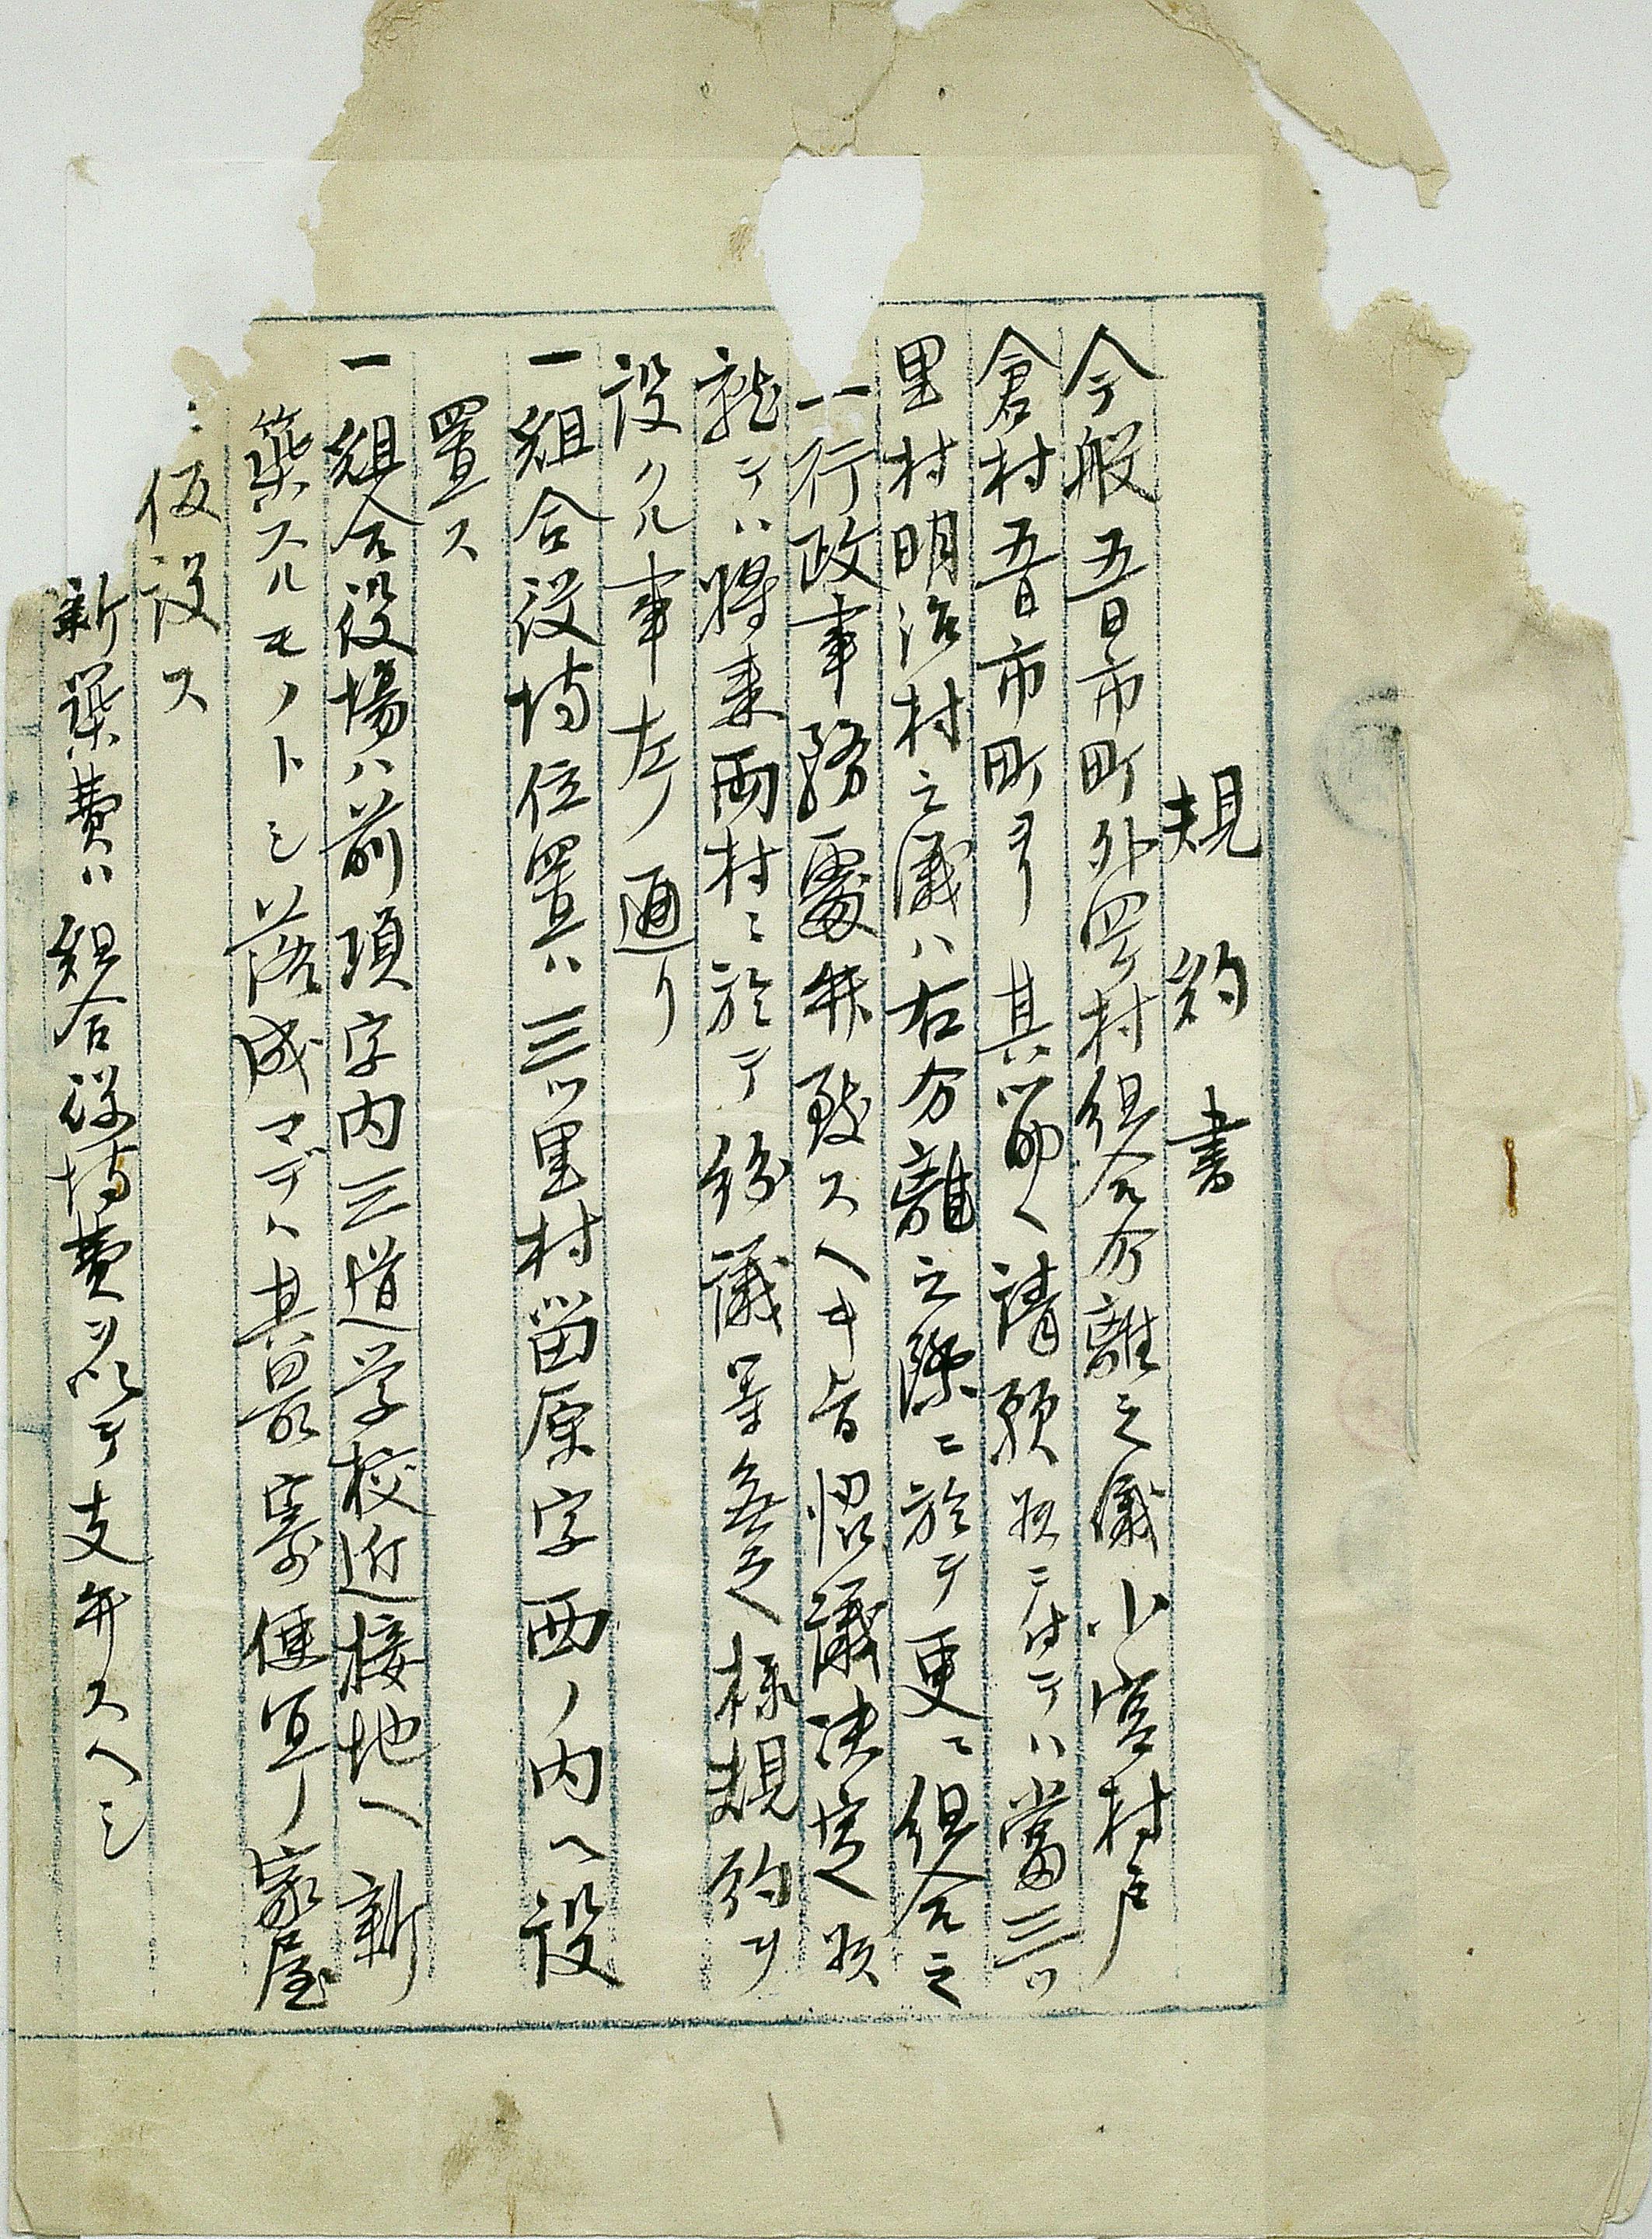 規約書
今般五日市町外四ケ村組合分離之儀小宮村戸
倉村五日市町ヨリ其筋ヘ請願相成ニ付テハ當三ツ
里村明治村之儀ハ右分離之際ニ於テ更ニ組合之
一行政事務處弁致スヘキ旨協議決定候
就テハ将来両村ニ於テ紛議等無之様規約ヲ
設クル事左ノ通リ
一組合役場位置ハ三ツ里村留原字西ノ内ヘ設
置ス
一組合役場ハ前項字内三道学校近接地ヘ新
築スルモノトシ落成マデハ其最寄便宜ノ家屋
仮設ス
新築費ハ組合役場費ヲ以テ支弁スヘシ